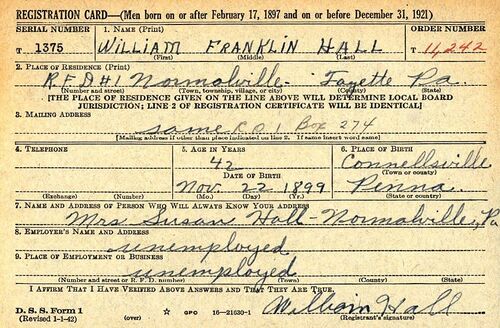 REGISTRATION CARD—(Men born on or after February 17, 1897 and on or before December 31, 1921)
SERIAL NUMBER 1. NAME (Print) ORDER NUMBER
T 1375 WILLIAM FRANKLIN HALL T 11,242
(First) (Middle) (Last)
2. PLACE OF RESIDENCE (Print)
R.F.D#1 Normalville- Fayette Pa.
(Number and street) (Town, township, village, or city) (County) (State)
[THE PLACE OF RESIDENCE GIVEN ON THE LINE ABOVE WILL DETERMINE LOCAL BOARD
JURISDICTION; LINE 2 OF REGISTRATION CERTIFICATE WILL BE IDENTICAL]
3. MAILING ADDRESS
same Box 274
[Mailing address if other than place indicated on line 2. If same insert word same]
4. TELEPHONE 5. AGE IN YEARS 6. PLACE OF BIRTH
42 Connellsville
DATE OF BIRTH (Town or county)
Nov. 22 1899 Penna.
(Exchange) (Number) (Mo.) (Day) (Yr.) (State or country)
7. NAME AND ADDRESS OF PERSON WHO WILL ALWAYS KNOW YOUR ADDRESS
Mrs. Susan Hall-Normalville, Pa
8. EMPLOYER'S NAME AND ADDRESS
unemployed
9. PLACE OF EMPLOYMENT OR BUSINESS
unemployed
(Number and street or R. F. D. number) (Town) (County) (State)
I AFFIRM THAT I HAVE VERIFIED ABOVE ANSWERS AND THAT THEY ARE TRUE.
William Hall
D. S. S. Form 1 (over) ☆ GPO 16—21630-1 (Registrant's signature)
(Revised 1-1-42)